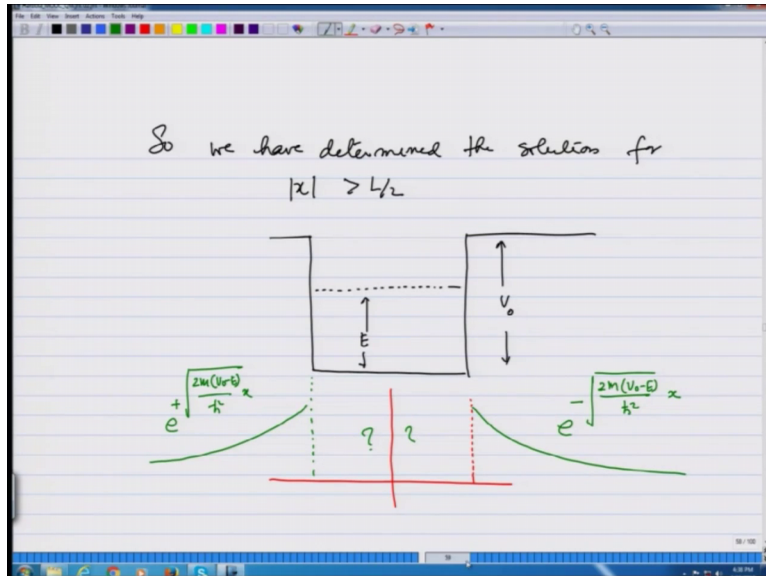 File Edit View Insert Actions Tools Help
So we have determined the solution for
|x| > L/2
V₀
E
e^{+√(2m(V₀-E)/ħ²) x}
e^{-√(2m(V₀-E)/ħ²) x}
? ?
59 / 100
59
4:38 PM